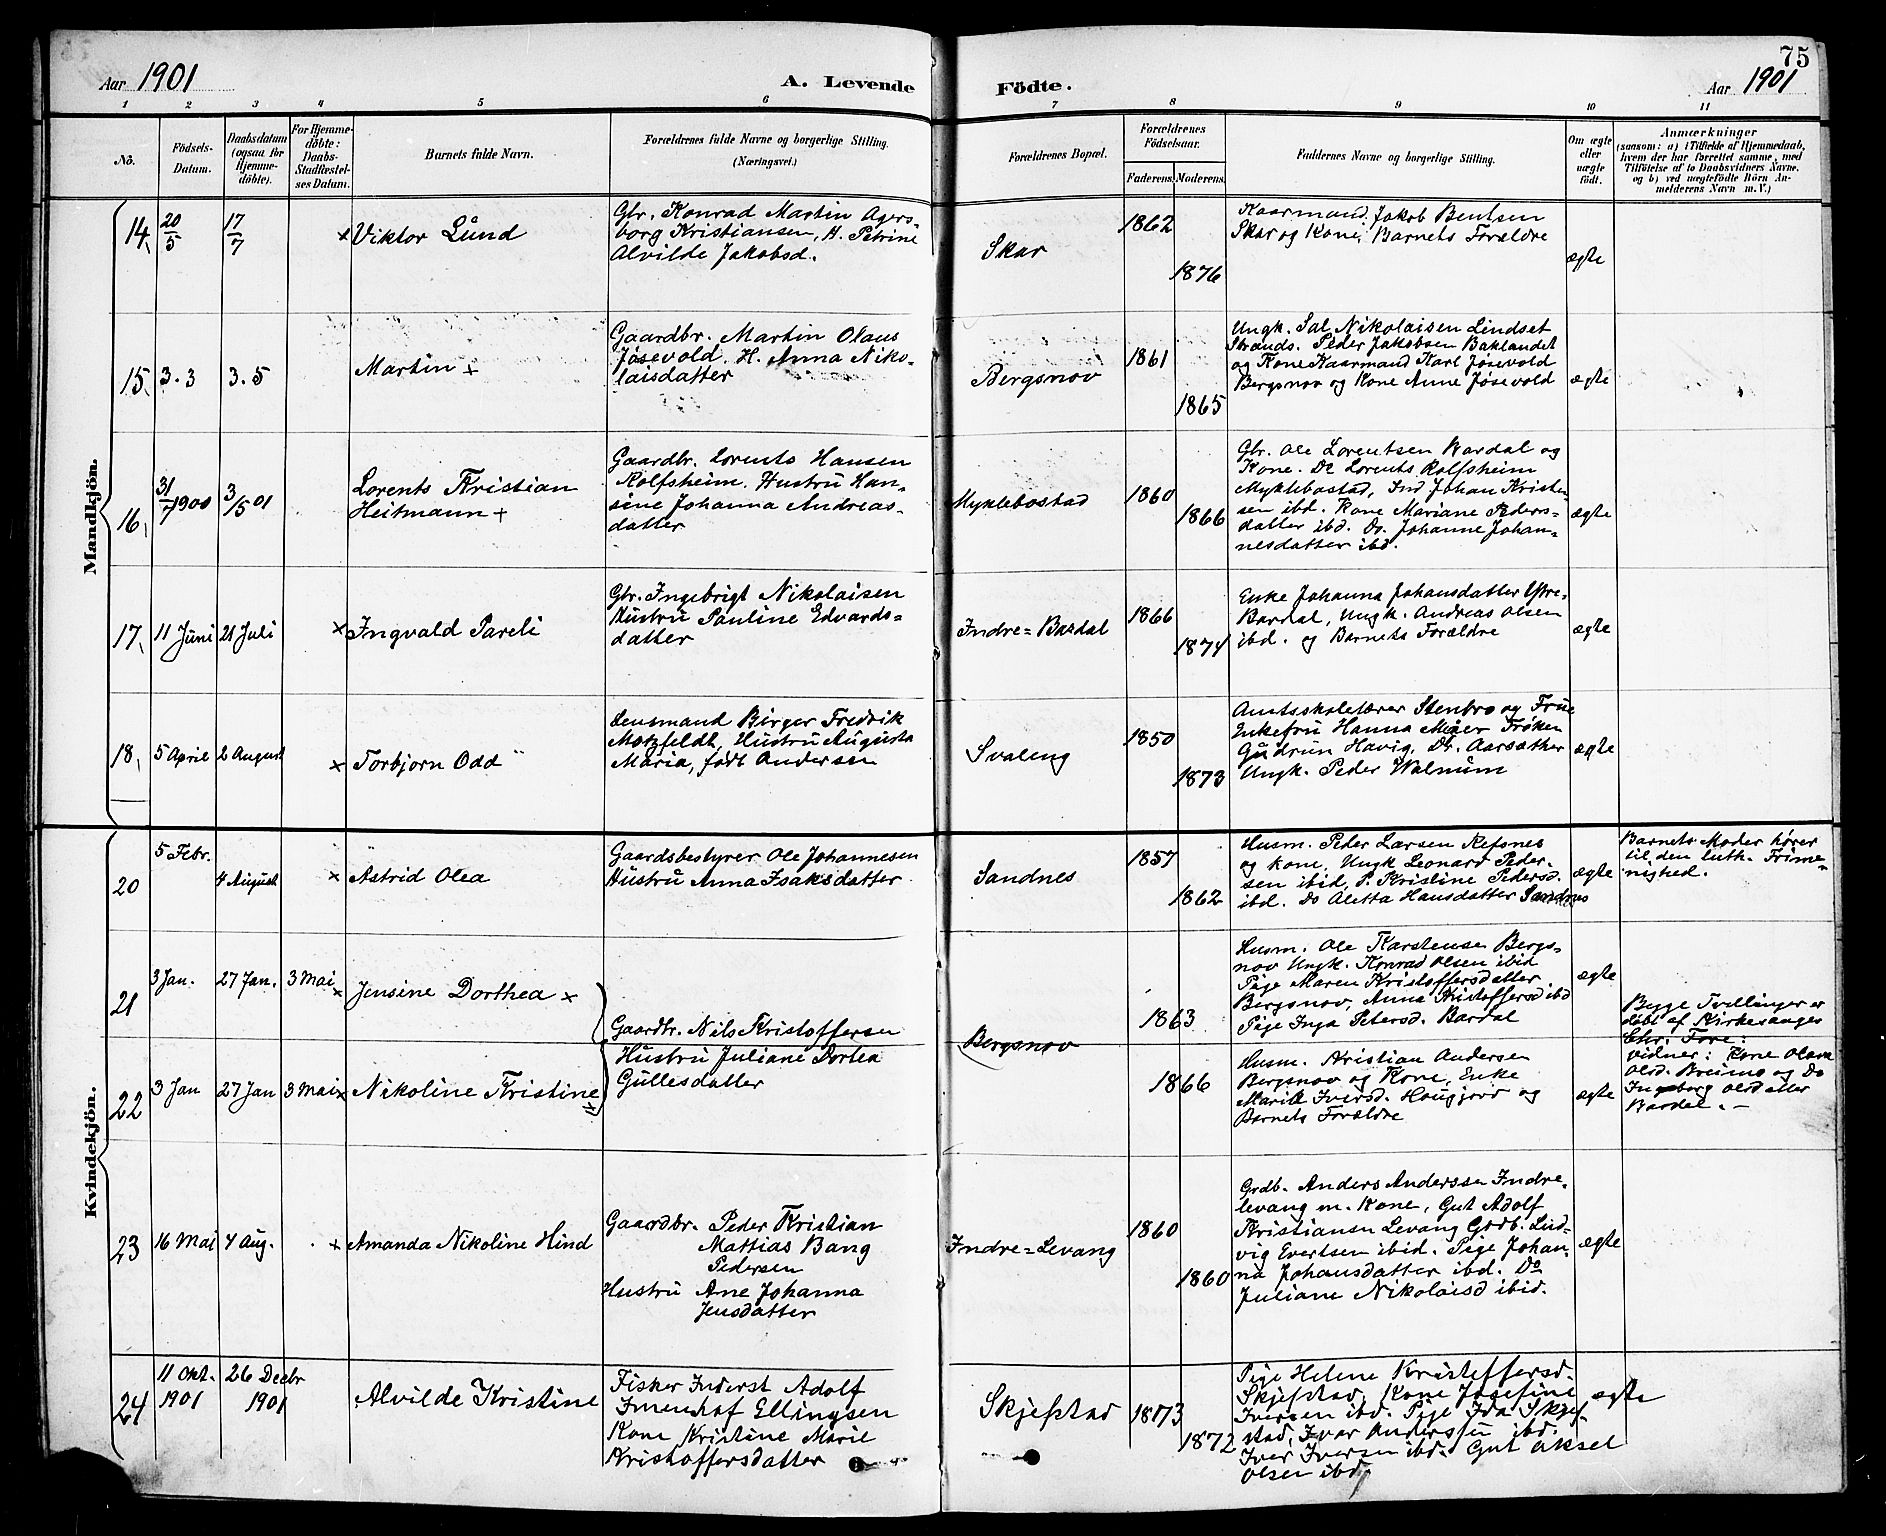 75
Aar 1901
A. Levende Födte.
Aar 1901
1 2 3 4 5 6 7 8 9 10 11
No.
Födsels-
Datum.
Daabsdatum
(ogsaa for
Hjemme-
döbte).
For Hjemme-
döbte:
Daabs-
Stadfæstel-
ses Datum.
Barnets fulde Navn.
Forældrenes fulde Navne og borgerlige Stilling.
(Næringsvei.)
Forældrenes Bopæl.
Forældrenes
Födselsaar.
Faderens. Moderens.
Faddernes Navne og borgerlige Stilling.
Om ægte
eller
uægte
födt.
Anmærkninger
(saasom: a) i Tilfælde af Hjemmedaab,
hvem der har forrettet samme, med
Tilföielse af to Daabsvidners Navne.
og b) ved uægtefödte Börn An-
melderens Navn m. V.)
Mandkjön.
14.
20/5
17/7
x Viktor Lund
Gbr. Konrad Martin Agers-
borg Kristiansen, H. Petrine
Alvilde Jakobsd.
Skar
1862
1876
Kaarmand Jakob Bentsen
Skar og Kone, Barnets Forældre
ægte
15.
3.3
3.5
Martin x
Gaardbr. Martin Olaus
Jøsevold. H. Anna Niko-
laisdatter
Bergsnov
1861
1865
Ungk. Sal Nikolaisen Lindset
Strands. Peder Jakobsen Baklandet
og Kone Kaarmand Karl Jøsevold
Bergsnov og Kone Anne Jøsevold
ægte
16.
31/7 1900
3/5 01
Lorents Kristian
Heitmann +
Gaardbr. Lorents Hansen
Rolfsheim. Hustru Han-
sine Johanna Andreas-
datter
Myklebostad
1860
1866
Gbr. Ole Lorentsen Bardal og
Kone. Do Lorents Rolfsheim
Myklebostad, Ind Johan Kristen-
sen ibd. Kone Mariane Peders-
datter ibd. Do. Johanne Johan-
nesdatter ibd.
ægte
17.
11 Juni
21 Juli
x Ingvald Pareli
Gbr. Ingebrigt Nikolaisen
Hustru Pauline Edvards-
datter
Indre=Bardal
1866
1874
Enke Johanna Johansdatter Ytre-
Bardal, Ungk. Andreas Olsen
ibd. og Barnets Forældre
ægte
18.
5 April
2 August
x Torbjorn Odd
Lensmand Birger Fredrik
Motzfeldt, Hustru Augusta
Maria, født Andersen
Svaleng
1850
1873
Amtsskolelærer Stenbro og Frue
Enkefru Hanna Meier Frøken
Gudrun Havig, Dr. Aarsæther
Ungk. Peder Walnum
ægte
Kvindekjön.
20
5 Febr.
4 August
x Astrid Olea
Gaardsbestyrer Ole Johannesen
Hustru Anna Isaksdatter
Sandnes
1857
1862
Husm. Peder Larsen Refsnes
og kone, Ungk Leonard Peder-
sen ibid, P. Kristine Pedersd.
ibd. Do Aletta Hansdatter Sandnes
ægte
Barnets Moder hører
til den luth. Frime-
nighed.
21
3 Jan.
27 Jan.
3 Mai
x Jensine Dorthea x
Gaardbr. Nils Kristoffersen
Hustru Juliane Dortea
Gullesdatter
Bergsnov
1863
Husm. Ole Karstensen Bergs-
nov Ungk. Konrad Olsen ibid
Pige Maren Kristoffersdatter
Bergsnov, Anna Kristoffersd ibd
Pige Inga Petersd. Bardal
ægte
Begge Tvillinger er
døbt af Kirkesanger
Chr. Fore:
Vidner: Kone Olava
Olsd. Breimo og Do
Ingeborg Olsdatter
Bardal. —
22
3 Jan
27 Jan
3 Mai
x Nikoline Kristine x
1866
Husm. Kristian Andersen
Bergsnov og Kone, Enke
Marit Iversd. Haugjord og
Barnets Forældre
ægte
23
16 Mai
4 Aug.
x Amanda Nikoline Hind
Gaardbr. Peder Kristian
Mattias Bang
Pedersen
Hustru Ane Johanna
Jensdatter
Indre=Levang
1860
1860
Grdb. Anders Anderssen Indre-
levang m. Kone, Gut Adolf
Kristiansn Levang Grdb. Lud-
vig Evertsen ibid. Pige Johan-
na Johansdatter ibd. Do
Juliane Nikolaisd ibid.
ægte
24
11 Okt.
1901
26 Decbr
1901
Alvilde Kristine
Fisker Inderst Adolf
Imenhof Ellingsen
Kone Kristine Marie
Kristoffersdatter
Skjefstad
1873
1872
Pige Helene Kristoffersd.
Skjefstad, Kone Josefine
Iversen ibd. Pige Ida Skjef-
stad, Ivar Anderssen ibd.
Iver Iversen ibd. Gut Aksel
Olsen ibd.
ægte